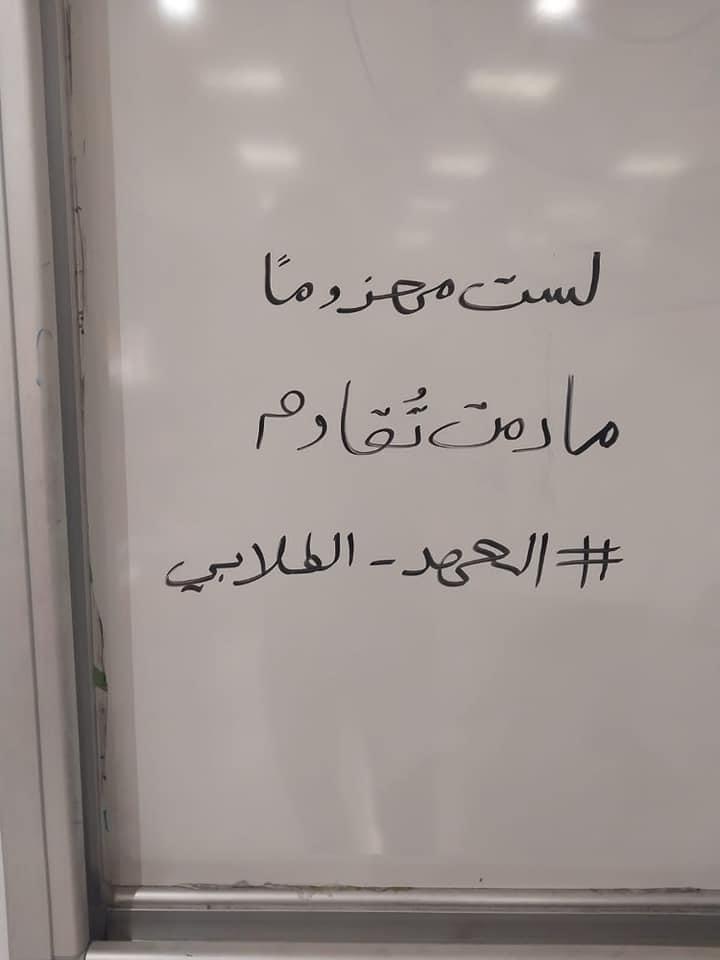 لست مهزومًا
مادمت تُقاوم
#العهد-الطلابي